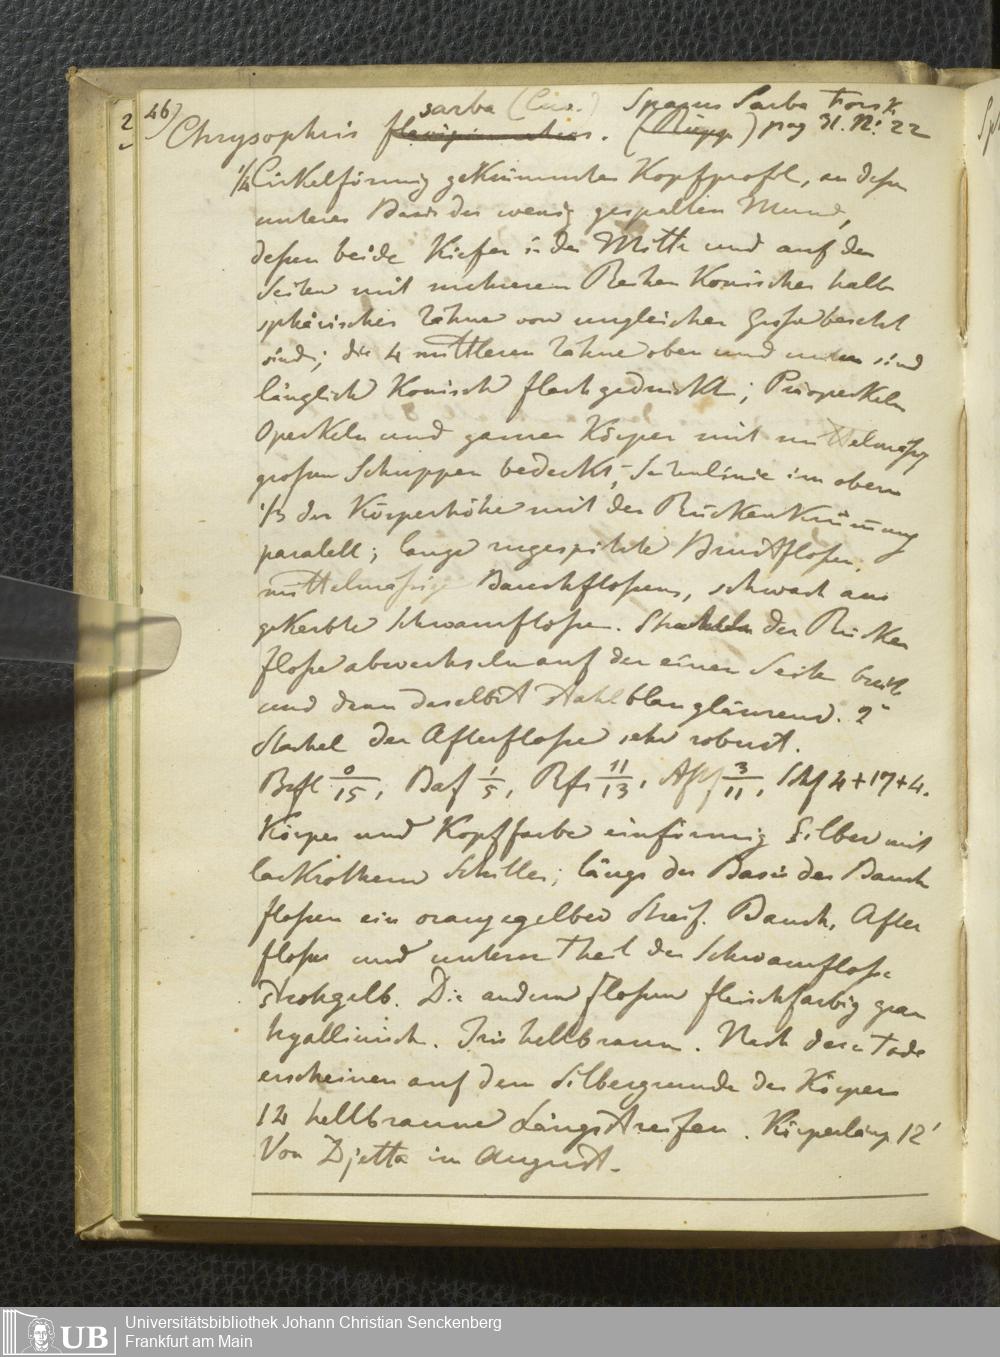 46) sarba (Cuv.) Sparus Sarba Forsk
2 Chrysophris . (Rüpp) pag 31. No: 22
1/4 Cirkelförmig gekrümmtes Kopfprofil, an deßen
unteren Basis der wenig gespalten Mund,
deßen beide Kiefer in der Mitte und auf den
Seiten mit mehreren Reihen Konischer halb
sphärischer Zähne von ungleicher Große besetzt
sind; die 4 mittleren Zähne oben und unten sind
länglich Konisch flach gedrückt; Präoperkeln
Operkeln und ganzer Körper mit mittelmäßig
großen Schuppen bedeckt, Seitenlinie im obern
1/3 der Körperhöhe mit der Rücken Krümmung
paralell; lange zugespitzte Brustfloßen,
mittelmäßige Bauchfloßen, schwach aus
gekerbte Schwanzfloße. Stacheln der Rücken
floße abwechseln auf der einen Seite breit
und dann daselbst stahlblau glänzend. 2
Stachel der Afterfloße sehr robust.
Brfl 0/15, Baf 1/5, Rf 11/13, Aff 3/11, Schf 4+17+4.
Körper und Kopffarbe einförmig Silber mit
lackrothem Schiller; längs der Basis der Bauch
floßen ein orangegelber Streif. Bauch, After
floße und unterer Theil der Schwanzfloße
strohgelb. Die andern Floßen fleischfarbig grau
hyallinisch. Iris hellbraun. Nach dem Tode
erscheinen auf dem Silbergrunde des Körpers
14 hellbraune Längsstreifen. Körperlänge 12'
Von Djetta im August.
UB Universitätsbibliothek Johann Christian Senckenberg
Frankfurt am Main